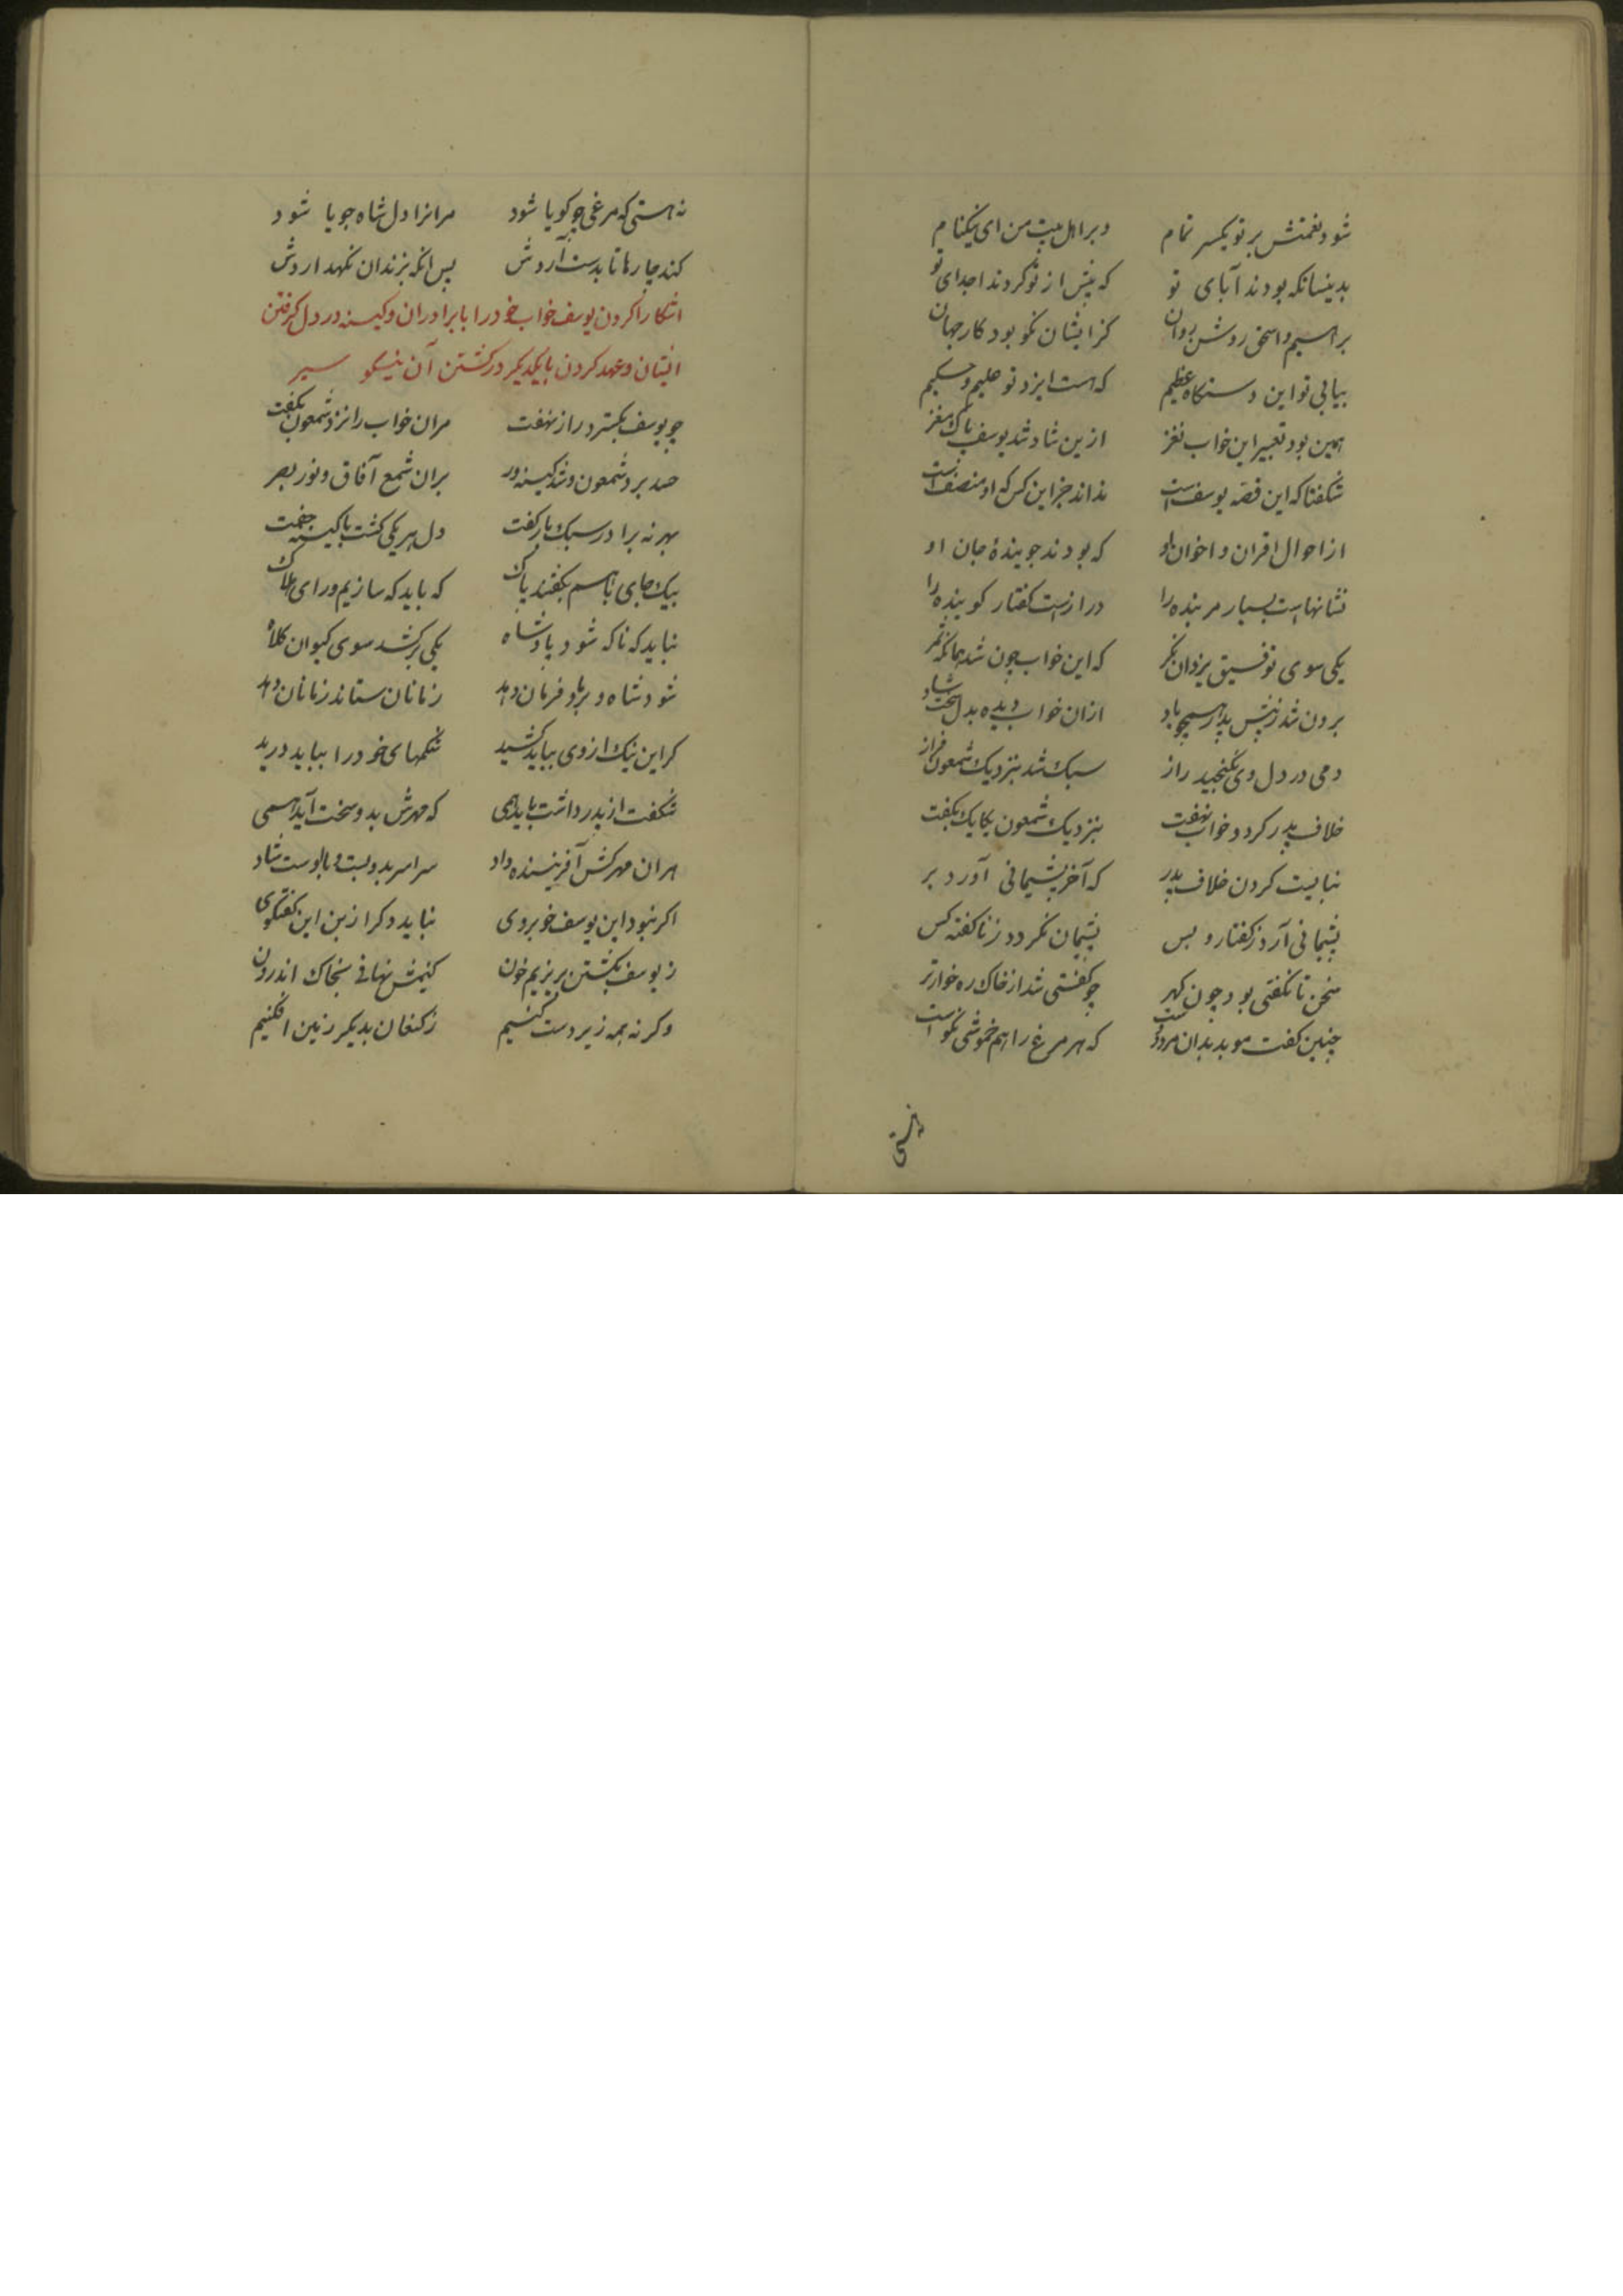 شود نعمتش بر تو یکسر تمام و بر اهل بیت من ای نیکنام
بدینسانکه بودند آبای تو که پیش از تو کردند اجدای تو
براهیم و اسحق روشن روان کز ایشان نکو بود کار جهان
بیابی تو این دستکاه عظیم که هست ایزد تو علیم و حکیم
همین بود تعبیر این خواب نغز ازین شاد شد یوسف پاک مغز
شکفتا که این قصه یوسف است نداند جز این کس که او منصف است
از احوال اقران و اخوان او که بودند جوینده جان او
نشانهاست بسیار مر بنده را دراز است کفتار کوینده را
یکی سوی توفیق یزدان نکر که این خواب چون شد همانکه
برون شد ز پیش پدر همچو باد ازان خواب دیده بدل سخت شاد
دمی در دل وی نکنجید راز سبک شد بنزدیک شمعون فراز
خلاف پدر کرد و خواب نهفت بنزدیک شمعون یکایک بکفت
نبایست کردن خلاف پدر که آخر پشیمانی آورد بر
پشیمانی آرد ز کفتار و بس پشیمان نکردد ز ناکفته کس
سخن تا نکفتی بود چون کهر چو کفتی شد از خاک ره خوارتر
چنین کفت موبد بدان مرد که هر مرغ را هم خموشی نکو است
نه هستی که مرغی چو کویا شود مرانرا دل شاه جویا شود
کند چارها تا بدست آردش پس انکه بزندان نکهداردش
اشکارا کردن یوسف خواب خود را با برادران و کینه در دل کرفتن
ایشان و عهد کردن با یکدیکر در کشتن آن نیکو سیر
چو یوسف بکسترد راز نهفت مران خواب را نزد شمعون بکفت
حسد برد شمعون و شد کینه ور بران شمع آفاق و نور بصر
بهر نه برادر سبک بار کفت دل هر یکی کشت با کینه جفت
بیک جای با هم بکفتند پاک که باید که سازیم ورای هلاک
نباید که ناکه شود پادشاه یکی برکشد سوی کیوان کلاه
شود شاه و بر ما و فرمان دهد زمانان ستاند زمانان دهد
کر این نیک ازوی بباید کشید شکمهای خود را بباید درید
شکفت از پدر داشت باید همی که مهرش بدو سخت آید همی
هران مهر کش آفریننده داد سراسر بدو بست و با اوست شاد
اکر نبود این یوسف خوبروی نباید دکر از بن این کفتکوی
ز یوسف بکشتن بریزیم خون کنیمش نهانی بخاک اندرون
وکرنه همه زیر دست کنیم ز کنعان بدیکر زمین افکنیم
نه هستی